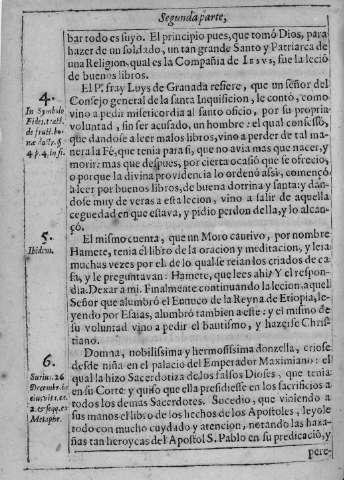 Segunda parte,
bar todo es suyo. El principio pues, que tomó Dios, para
hazer de un soldado, un tan grande Santo y Patriarca de
una Religion, qual es la Compañia de IESVS, fue la leció
de buenos libros.
4.
In Symbolo
Fidei, tract.
de fruct. bo-
næ doctr. §
4. p. 4. in fi.
El P. fray Luys de Granada refiere, que un señor del
Consejo general de la santa Inquisicion, le contó, como
vino a pedir misericordia al santo oficio, por su propria
voluntad, sin ser acusado, un hombre: el qual confessó,
que dandose a leer malos libros, vino a perder de tal ma-
nera la Fè, que tenia para si, que no avia mas que nacer, y
morir: mas que despues, por cierta ocasió que se ofrecio,
o porque la divina providencia lo ordenó assi, començò
a leer por buenos libros, de buena dotrina y santa: y dan-
dose muy de veras a esta lecion, vino a salir de aquella
ceguedad en que estava, y pidio perdon della, y lo alcan-
çó.
5.
Ibidem.
El mismo cuenta, que un Moro cautivo, por nombre
Hamete, tenia el libro de la oracion y meditacion, y leia
muchas vezes por el: de lo qual se reian los criados de ca-
sa, y le preguntavan: Hamete, que lees ahi? Y el respon-
dia. Dexar a mi. Finalmente continuando la lecion, aquel
Señor que alumbró el Eunuco de la Reyna de Etiopia, le-
yendo por Esaias, alumbró tambien a este: y el mismo de
su voluntad vino a pedir el bautismo, y hazerse Chris-
tiano.
6.
Surius. 26
Decemb.
Metaphr.
Domna, nobilissima y hermosissima donzella, criose
desde niña en el palacio del Emperador Maximiano: el
qual la hizo Sacerdotiza de los falsos Dioses, que tenia
en su Corte y quiso que ella presidiesse en los sacrificios a
todos los demas Sacerdotes. Sucedio, que viniendo a
sus manos el libro de los hechos de los Apostoles, leyole
todo con mucho cuydado y atencion, notando las haza-
ñas tan heroycas del Apostol S. Pablo en su predicació, y
pere-